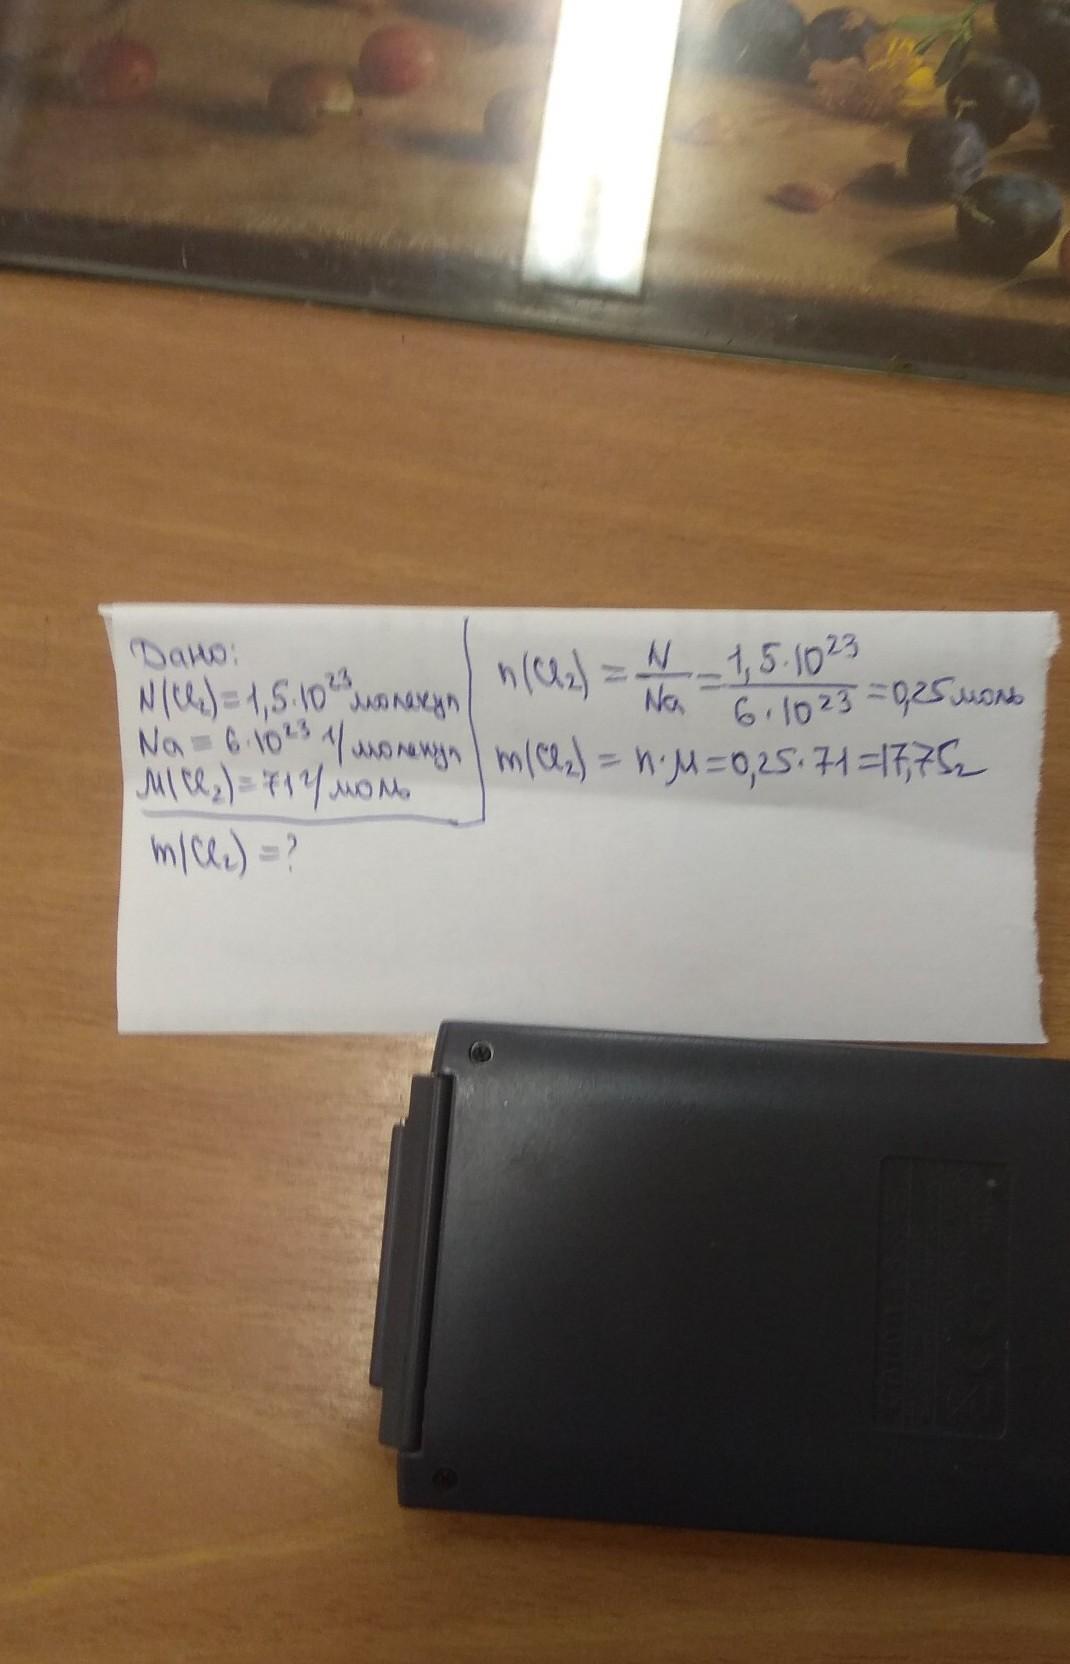 Дано:
N(Cl₂)=1,5·10²³ молекул
Na = 6·10²³ 1/молекул
M(Cl₂)=71 г/моль
m(Cl₂)=?
n(Cl₂) = N/Na = 1,5·10²³/6·10²³ = 0,25 моль
m(Cl₂) = n·M = 0,25·71 = 17,75г